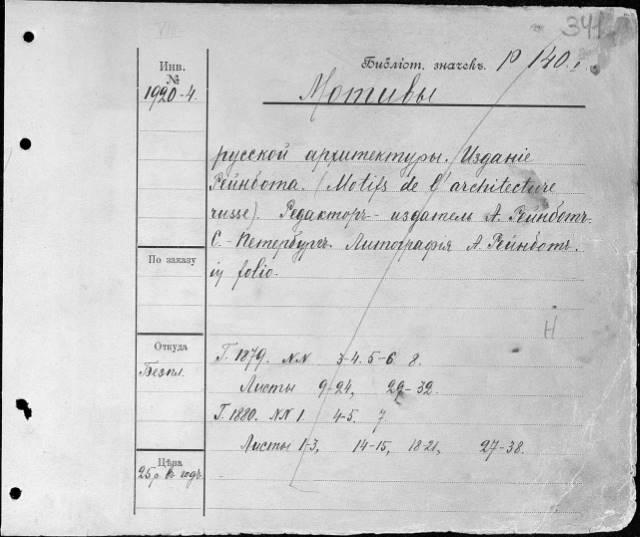 VIII
341
Инв.
№
1920-4.
Библіот. значекъ. Р 140.
Мотивы
русской архитектуры. Изданіе
Рейнбота. (Motifs de l'architecture
russe). Редакторъ-издатель А. Рейнботъ.
С.-Петербургъ. Литографія А. Рейнботъ.
in folio.
По заказу
Н
Откуда
Безпл.
Г. 1879. NN 3-4. 5-6 8.
Листы 9-24, 29-32.
Г. 1880. NN 1 4-5. 7
Листы 1-3, 14-15, 18-21, 27-38.
Цѣна
25 р въ годъ.